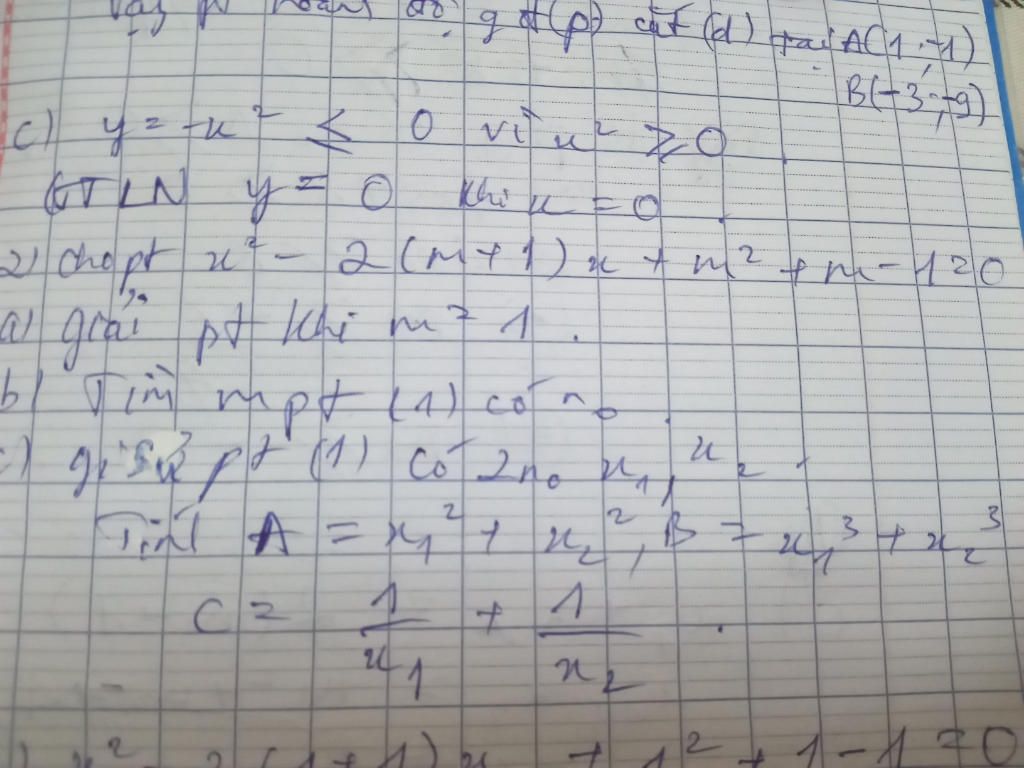 Vậy pt hoành độ g đ (p) cắt (d) tại A(1;-1)
B(-3;-9)
c) y = -x² ≤ 0 vì x² ≥ 0
GTLN y = 0 khi x = 0
2) cho pt x² - 2(m+1)x + m² + m - 1 = 0
a) giải pt khi m = 1.
b) Tìm m pt (1) có n₀.
c) giả sử pt (1) có 2n₀ x₁, x₂.
Tính A = x₁² + x₂², B = x₁³ + x₂³
C = 1/x₁ + 1/x₂.
) x² - 2(1+1)x + 1² + 1 - 1 = 0